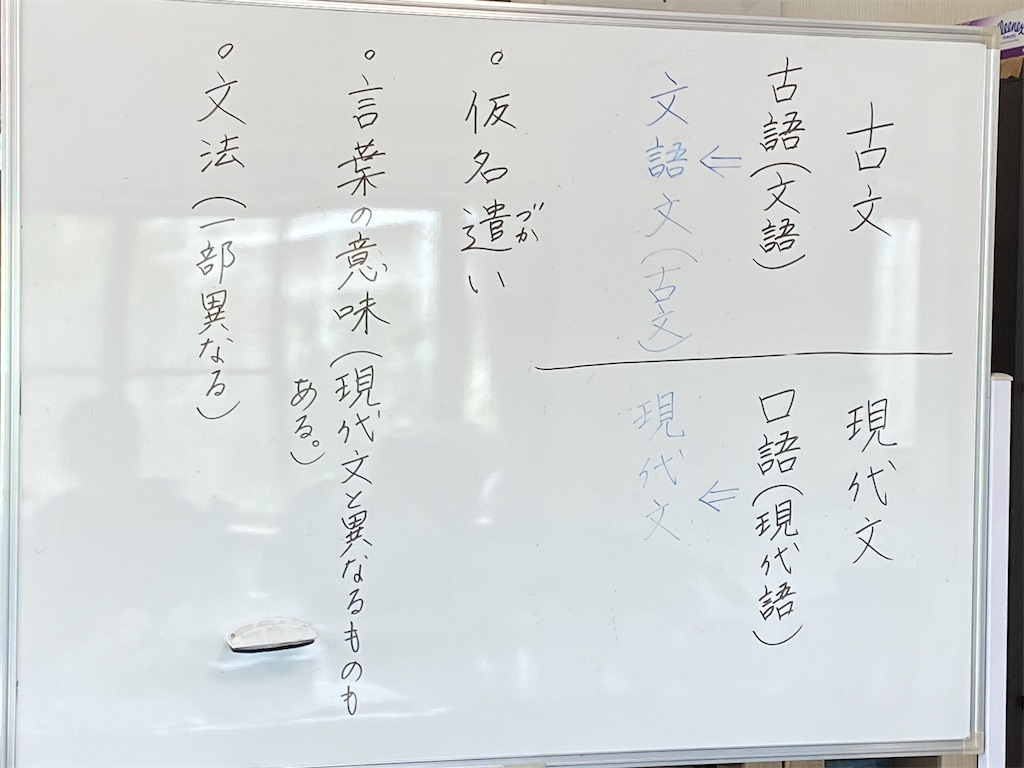 古文
現代文
古語(文語)
口語(現代語)
⇐
⇐
文語文(古文)
現代文
。仮名遣い
づか
。言葉の意味(現代文と異なるものも
ある。)
。文法(一部異なる)
Kleenex